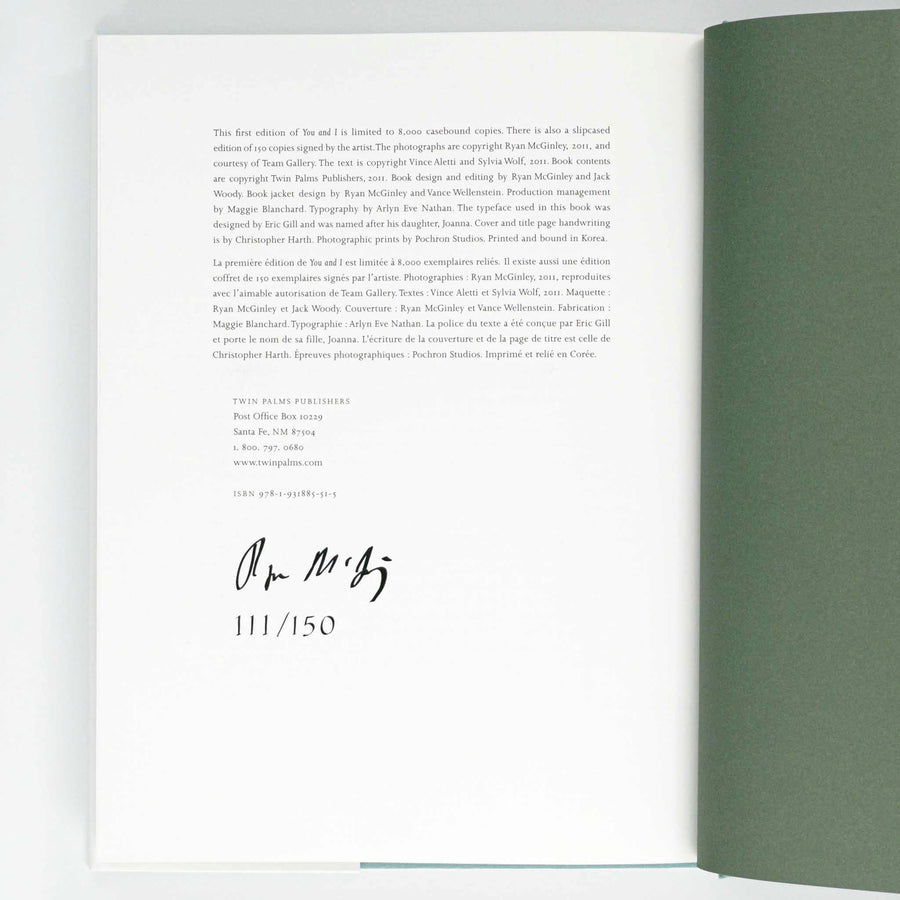 This first edition of You and I is limited to 8,000 casebound copies. There is also a slipcased
edition of 150 copies signed by the artist. The photographs are copyright Ryan McGinley, 2011, and
courtesy of Team Gallery. The text is copyright Vince Aletti and Sylvia Wolf, 2011. Book contents
are copyright Twin Palms Publishers, 2011. Book design and editing by Ryan McGinley and Jack
Woody. Book jacket design by Ryan McGinley and Vance Wellenstein. Production management
by Maggie Blanchard. Typography by Arlyn Eve Nathan. The typeface used in this book was
designed by Eric Gill and was named after his daughter, Joanna. Cover and title page handwriting
is by Christopher Harth. Photographic prints by Pochron Studios. Printed and bound in Korea.
La première édition de You and I est limitée à 8,000 exemplaires reliés. Il existe aussi une édition
coffret de 150 exemplaires signés par l'artiste. Photographies : Ryan McGinley, 2011, reproduites
avec l'aimable autorisation de Team Gallery. Textes : Vince Aletti et Sylvia Wolf, 2011. Maquette :
Ryan McGinley et Jack Woody. Couverture : Ryan McGinley et Vance Wellenstein. Fabrication :
Maggie Blanchard. Typographie : Arlyn Eve Nathan. La police du texte a été conçue par Eric Gill
et porte le nom de sa fille, Joanna. L'écriture de la couverture et de la page de titre est celle de
Christopher Harth. Épreuves photographiques : Pochron Studios. Imprimé et relié en Corée.
TWIN PALMS PUBLISHERS
Post Office Box 10229
Santa Fe, NM 87504
1. 800. 797. 0680
www.twinpalms.com
ISBN 978-1-931885-51-5
Ryan McGinley
111/150